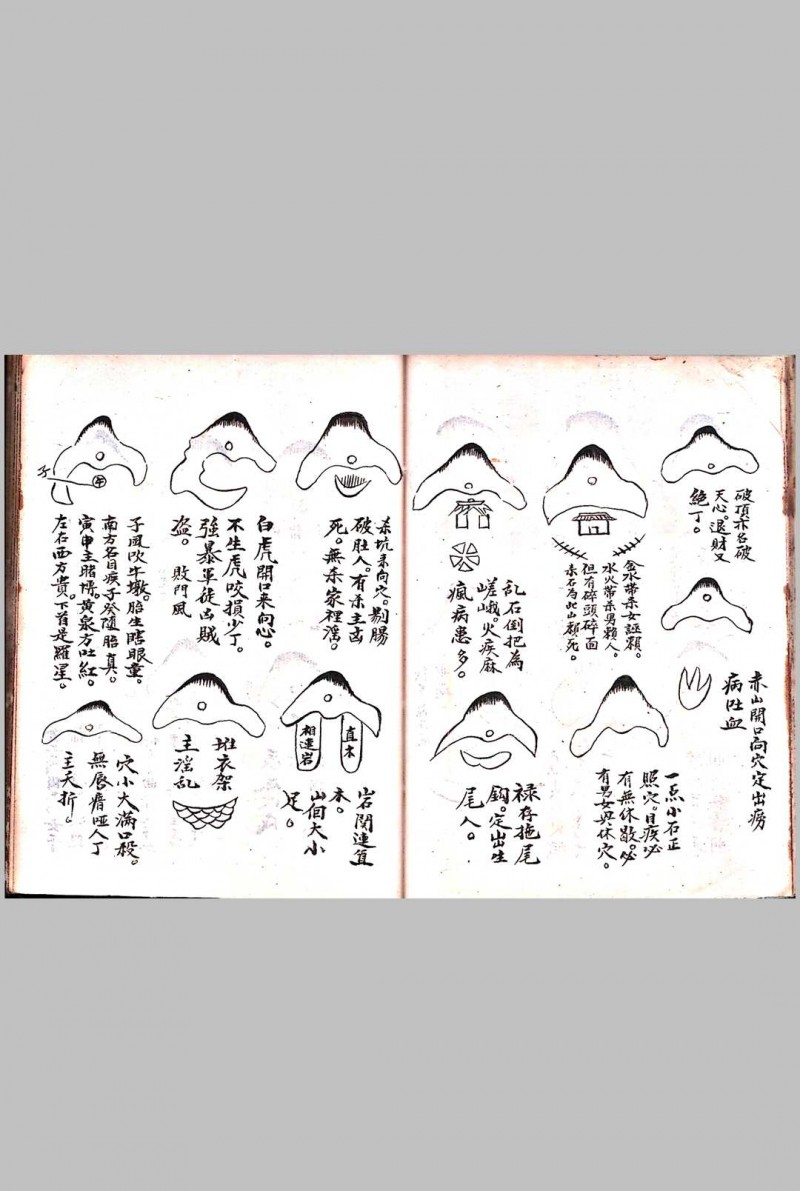 破頂亦名破
天心退財又
絕丁。
赤山開口向穴定出癆
病吐血
金水帶杀女誣賴。
水火帶杀男賴人。
但有碎頭碎面
赤石為此山賴死。
一点小石正
照穴。目疾必
有無休歇。必
有男女興休穴。
乱石倒把為
嵯峨。火疾麻
瘋病患多。
祿存拖尾
鈎。定出生
尾人。
杀坑来向穴。剔腸
破肚人。有杀主凶
死。無杀家裡淫。
岩関連直
木。
山個大小
足。
直木
相連岩
白虎開口来向心。
不生虎咬損少丁。
強暴軍徒凶賊
盗。 敗門風
堆衣架
主淫乱
子風吹午墩。胎生瞎眼童。
南方名目疾子癸随胎真。
寅申主賭博黄泉方吐紅。
左右西方貴下首是羅星。
子
午
穴小大滿口殺。
無唇瘖啞人丁
主夭折。